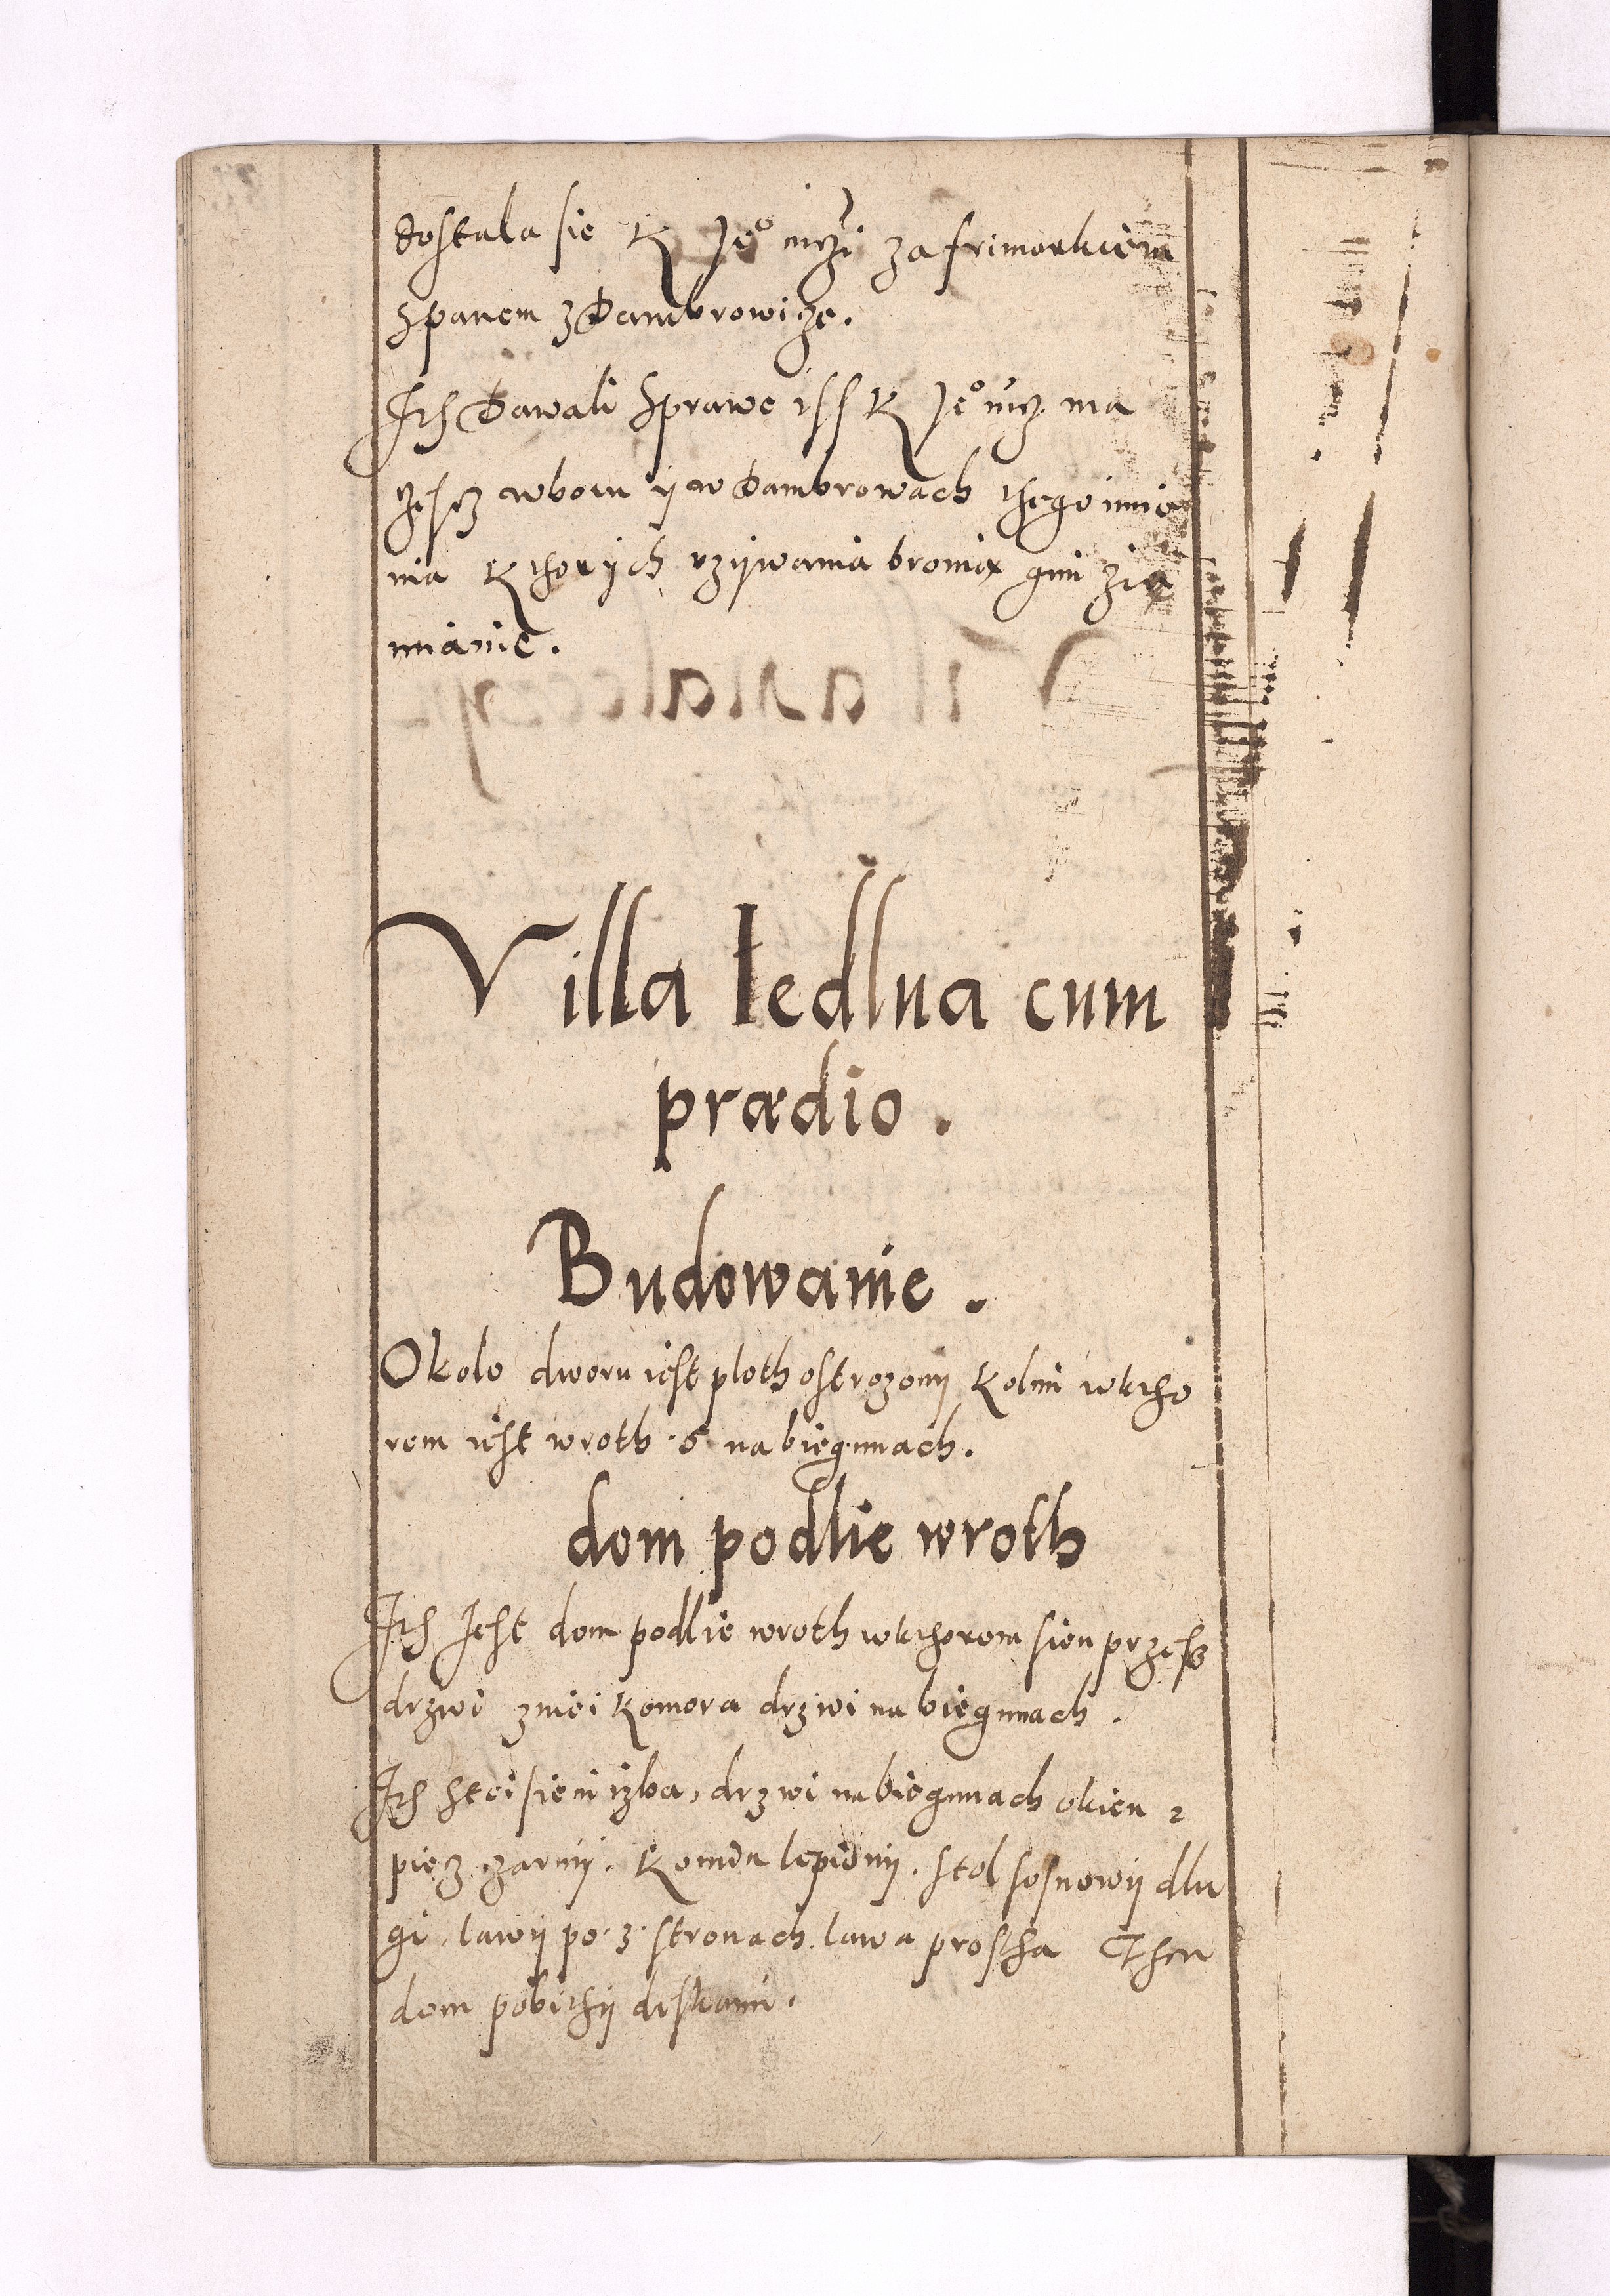 dostala sie K Je° mczi za frimarkiem
spanem z Dambrowicze.
Ith Dawali sprawe iss K Je° mcz ma
czescz wboru y w Dambrowach thego imie
nia Kthorych vzijwania bronia gim zie
mianie.
Villa Iedlna cum
prædio.
Budowanie.
Okolo dworu iest ploth ostrozony Kolmi wktho
rem iest wroth 5 na biegunach.
dom podlie wroth
Ith Iest dom podlie wroth wkthorem sien przess
drzwi zniei Komora drzwi na biegunach.
Ith stei sieni izba, drzwi na biegunach okien 2
piecz czarny. Komin lepiony. stol sosnowy dlu
gi, lawy po 3 stronach. lawa prostha Then
dom pobithy deskami.